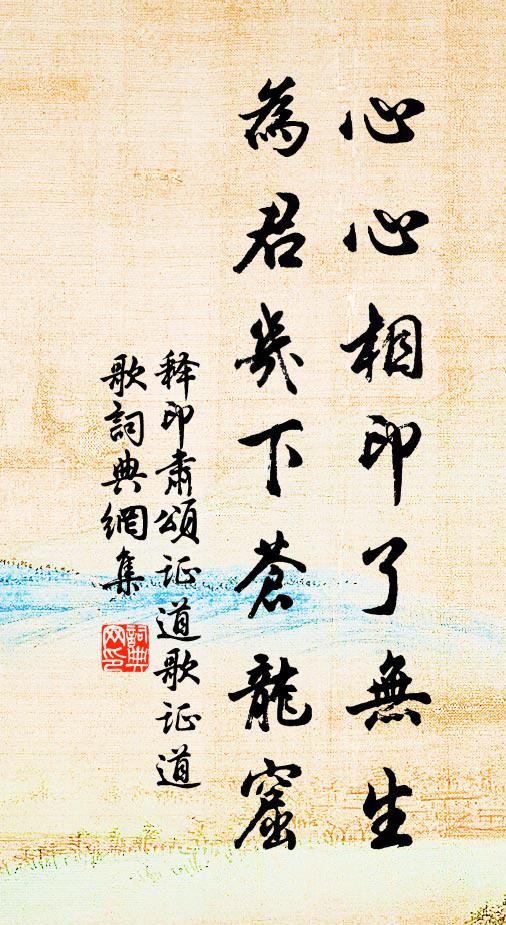 心心相印了無生
為君幾下蒼龍窟
释印肅頌证道歌证道
歌詞典網集
詞典网印